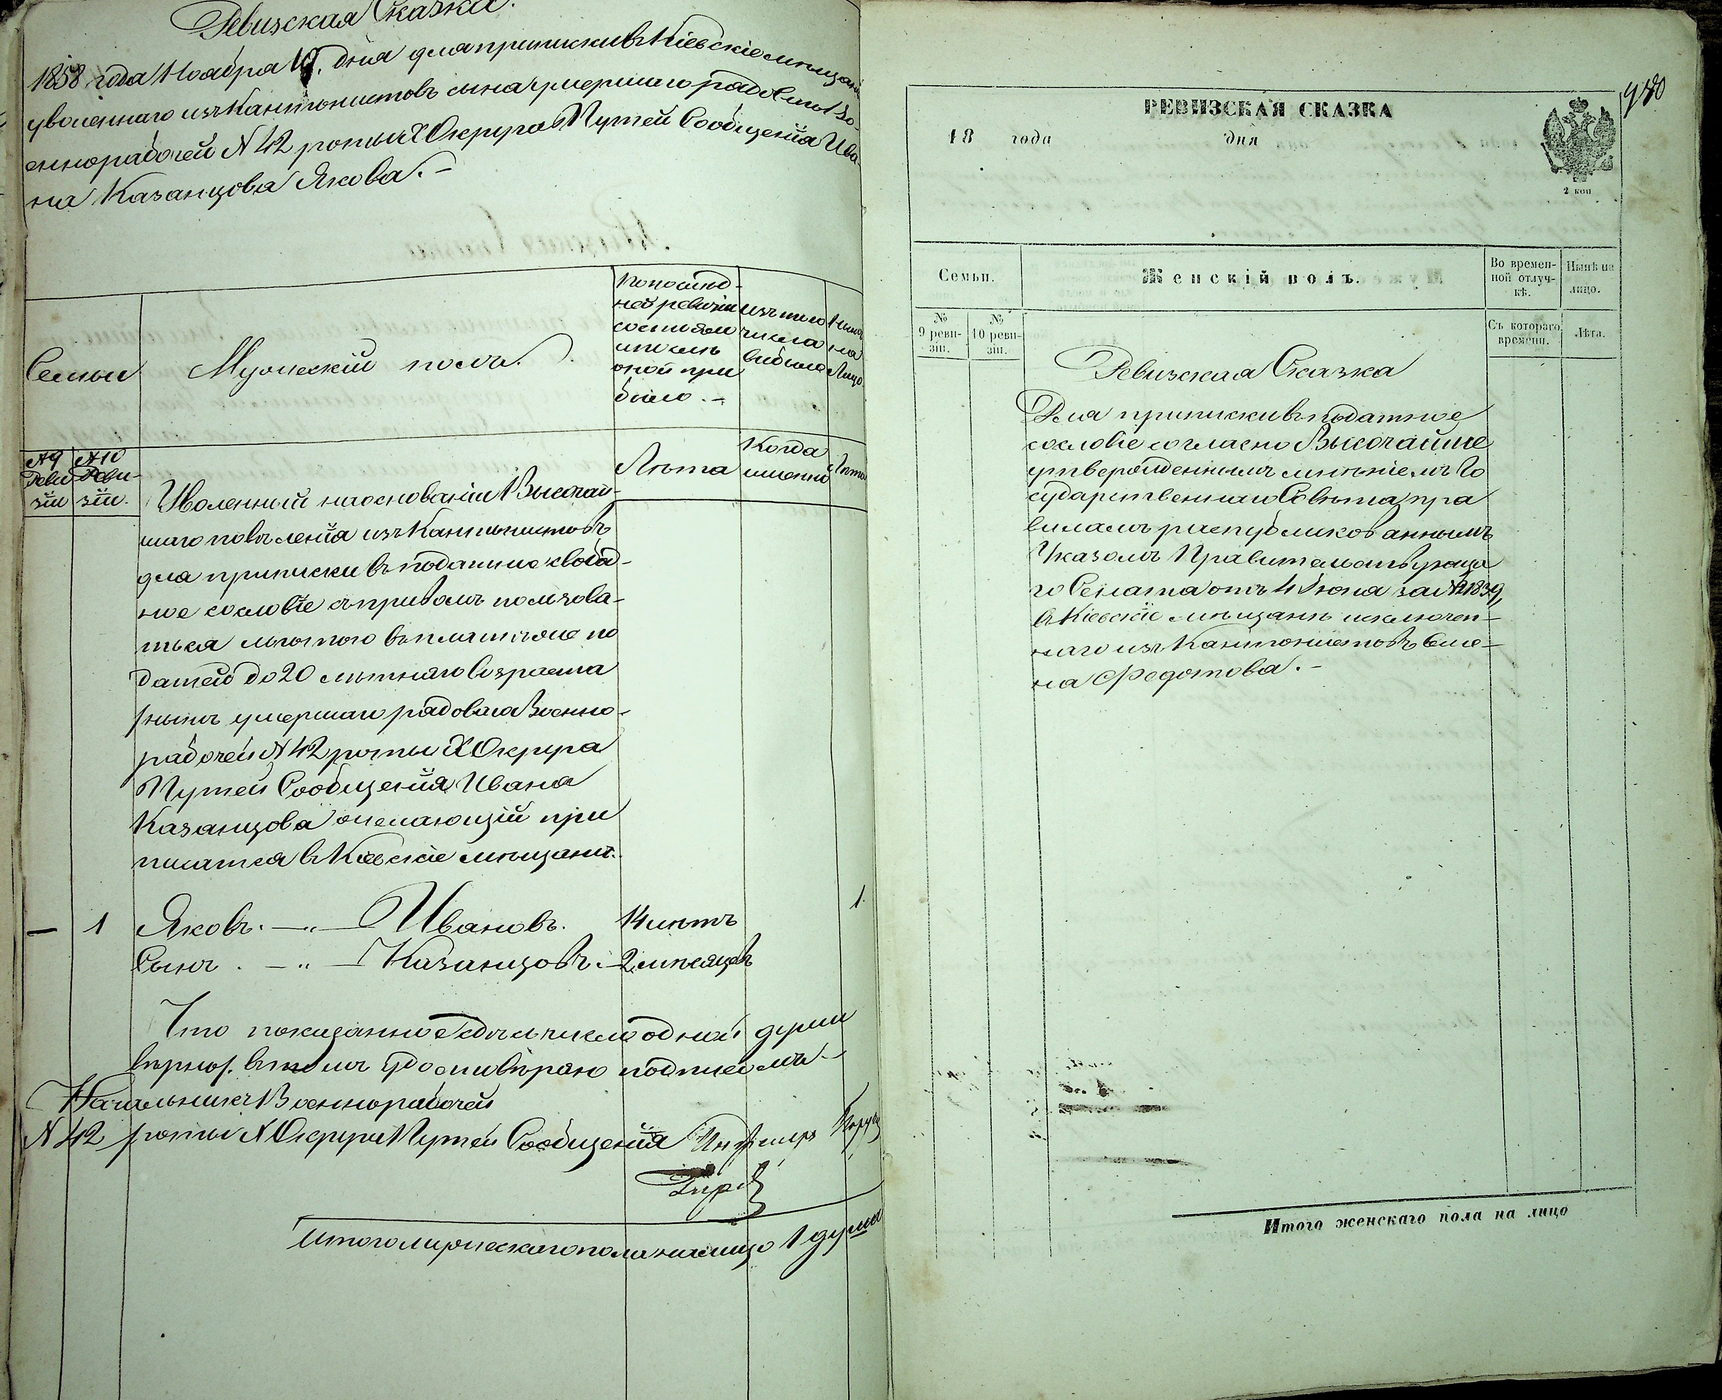 Ревизская Сказка.
1858 года Ноября 19. дня для приписки въ Кіевскіе мѣщане
уволеннаго изъ Кантонистовъ сына умершаго рядоваго Во-
еннорабочей N 42 роты X Округа Путей Сообщенія Ива
на Казанцова Якова. –
Семьи
Мужескій полъ.
По послѣд-
ней ревизіи
состояло
или послѣ
оной при
было. –
изъ того
числа
выбыло
Нынѣ
на
лицо
N 9
Реви
зіи
N 10
Реви-
зіи.
Лѣта
Когда
именно
Лѣта
Уволенный на основаніи Высочай-
шаго повѣленія изъ Кантонистовъ
для приписки въ податное свобод-
ное сословіе съ правомъ пользова-
ться льготою въ платежѣ по
датей до 20 лѣтняго возраста
сынъ умершаго рядоваго Военно-
рабочей N 42 роты X Округа
Путей Сообщенія Ивана
Казанцова желающій при
писатся въ Кіевскіе мѣщане.
— 1 Яковъ. — „ — Ивановъ. 14 лѣтъ 1.
Сынъ . — „ — Казанцовъ. – 2 мѣсяцовъ
Что показанное здѣсь число одной души
вѣрно, въ томъ удостовѣряю подписомъ –
Начальникъ Военнорабочей
N 42 роты X Округа Путей Сообщенія Инженеръ
Итого мужескаго пола на лицо 1 душа
980
РЕВИЗСКАЯ СКАЗКА
18 года дня
2 коп
Семьи.
Женскій полъ.
Во времен-
ной отлуч-
кѣ.
Нынѣ на
лицо.
№
9 реви-
зіи.
№
10 реви-
зіи.
Съ котораго
времени.
Лѣта.
Ревизская Сказка
Для приписки въ податное
сословіе согласно Высочайше
утвержденнымъ мнѣніемъ Го
сударственнаго Совѣта пра
виламъ распубликованнымъ
Указомъ Правительствующа
го Сената отъ 4 Июня за N 21839,
въ Кіевскіе мѣщане исключен-
наго изъ Кантонистовъ Семе-
на Федотова. –
Итого женскаго пола на лицо